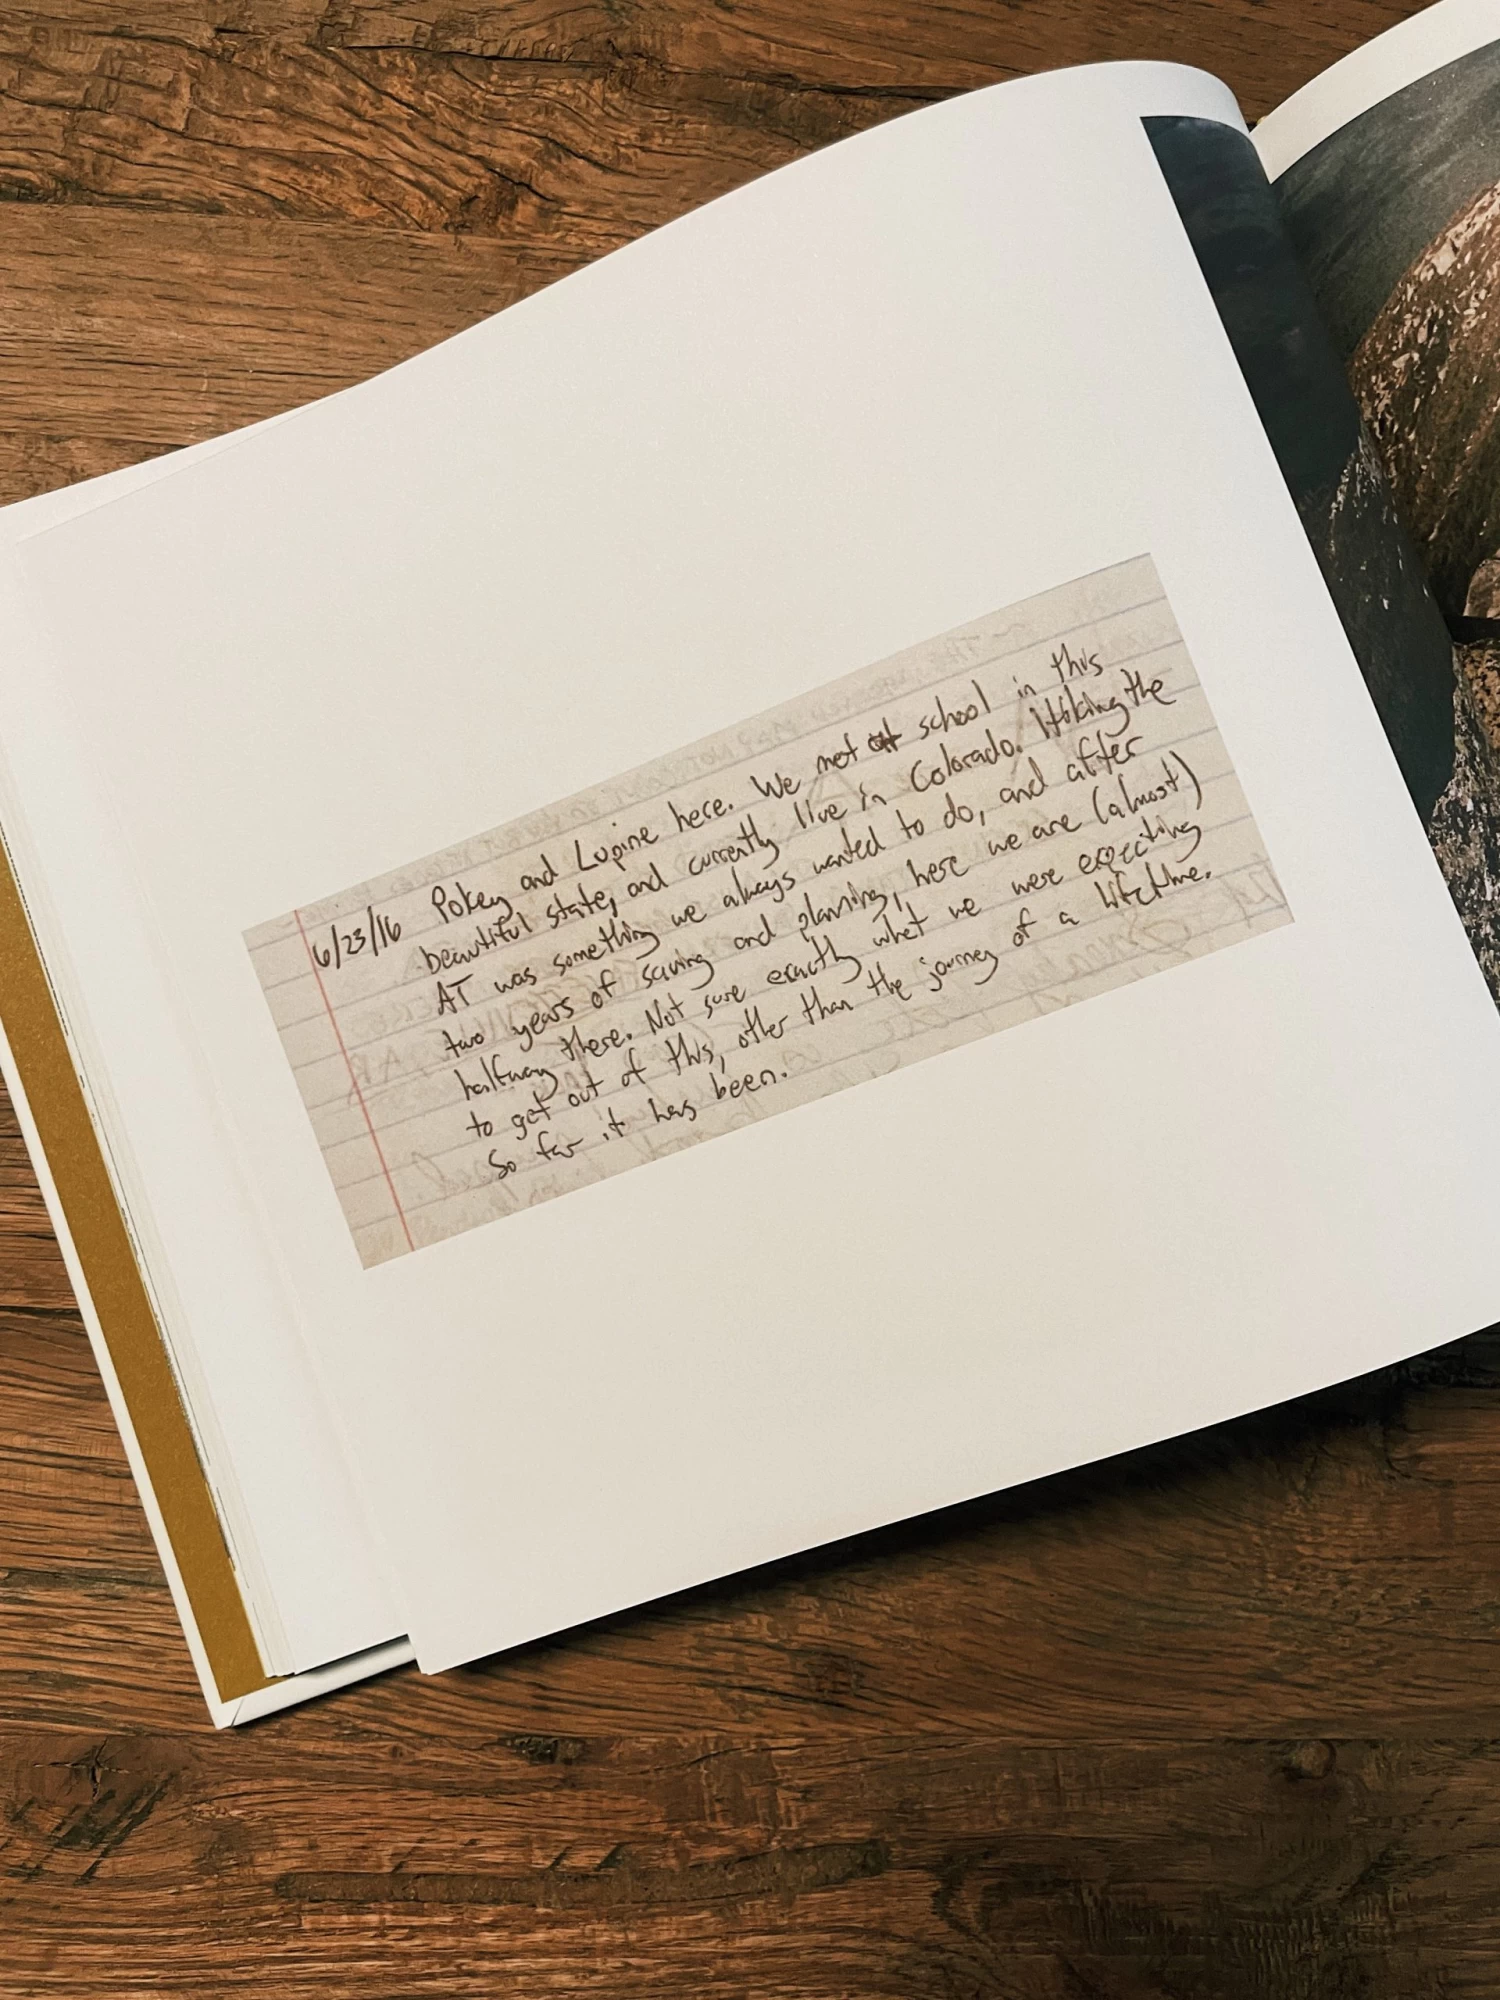 6/23/16 Pokey and Lupine here. We met at school in this
beautiful state, and currently live in Colorado. Hiking the
AT was something we always wanted to do, and after
two years of saving and planning, here we are (almost)
halfway there. Not sure exactly what we were expecting
to get out of this, other than the journey of a lifetime.
So far it has been.